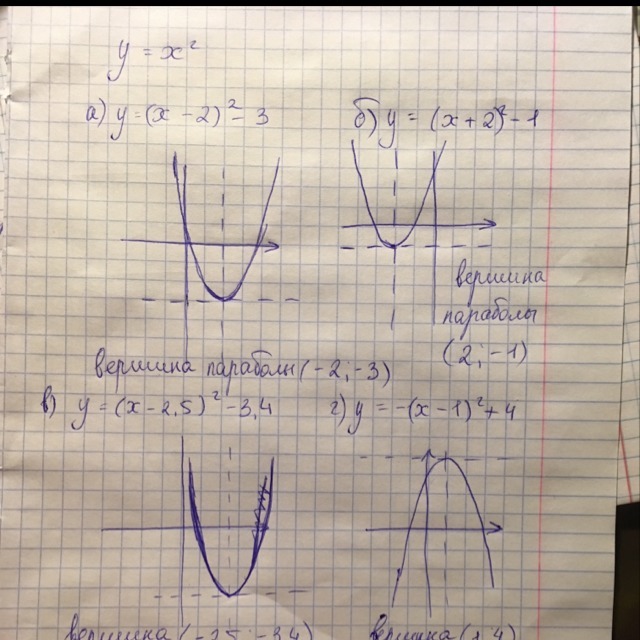 y = x²
а) y = (x - 2)² - 3
б) y = (x + 2)² - 1
вершина
параболы
(2; -1)
вершина параболы (-2; -3)
в) y = (x - 2,5)² - 3,4
г) y = -(x - 1)² + 4
вершина (-2,5; -3,4)
вершина (1; 4)